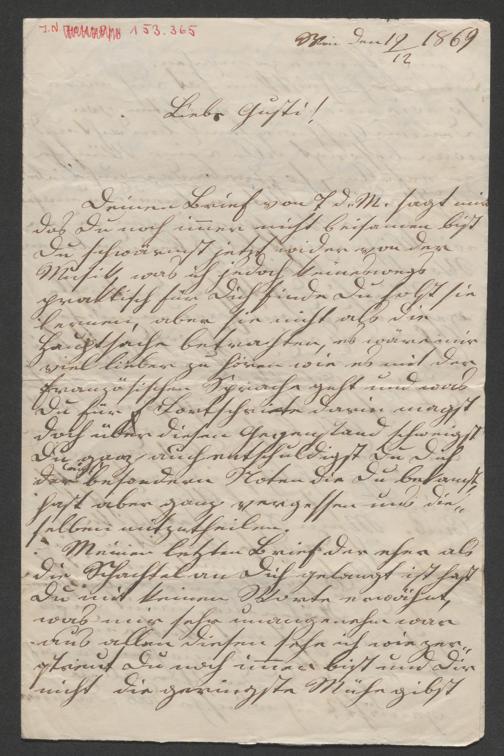 I.N. 153.365
Wien den 19/12 1869
Liebe Gusti!
Deinen Brief von 7 d. M. sagt mir
das Du noch immer nicht beisamen bist
Du schwärmst jetzt wider von der
Musik, was ich jedoch keineswegs
praktisch für Dich finde Du sollst sie
lernen, aber sie nicht als die
Hauptsache betrachten, es wäre mir
viel lieber zu hören wie es mit der
französischen Sprache geht und was
Du für Fortschritte darin magst
doch über diesen Gegenstand schweigst
Du ganz, auch entschuldigst Du Dich
der besondern Noten die Du bekamst
hast aber ganz vergessen uns die-
selben mitzutheilen.
Meinen letzten Brief der eher als
die Schachtel an Dich gelangt ist hast
Du mit keinen Worte erwähnt,
was mir sehr unangenehm war
aus allen diesen sehe ich wie zer-
streut Du noch immer bist und Dir
nicht die geringste Mühe gibst